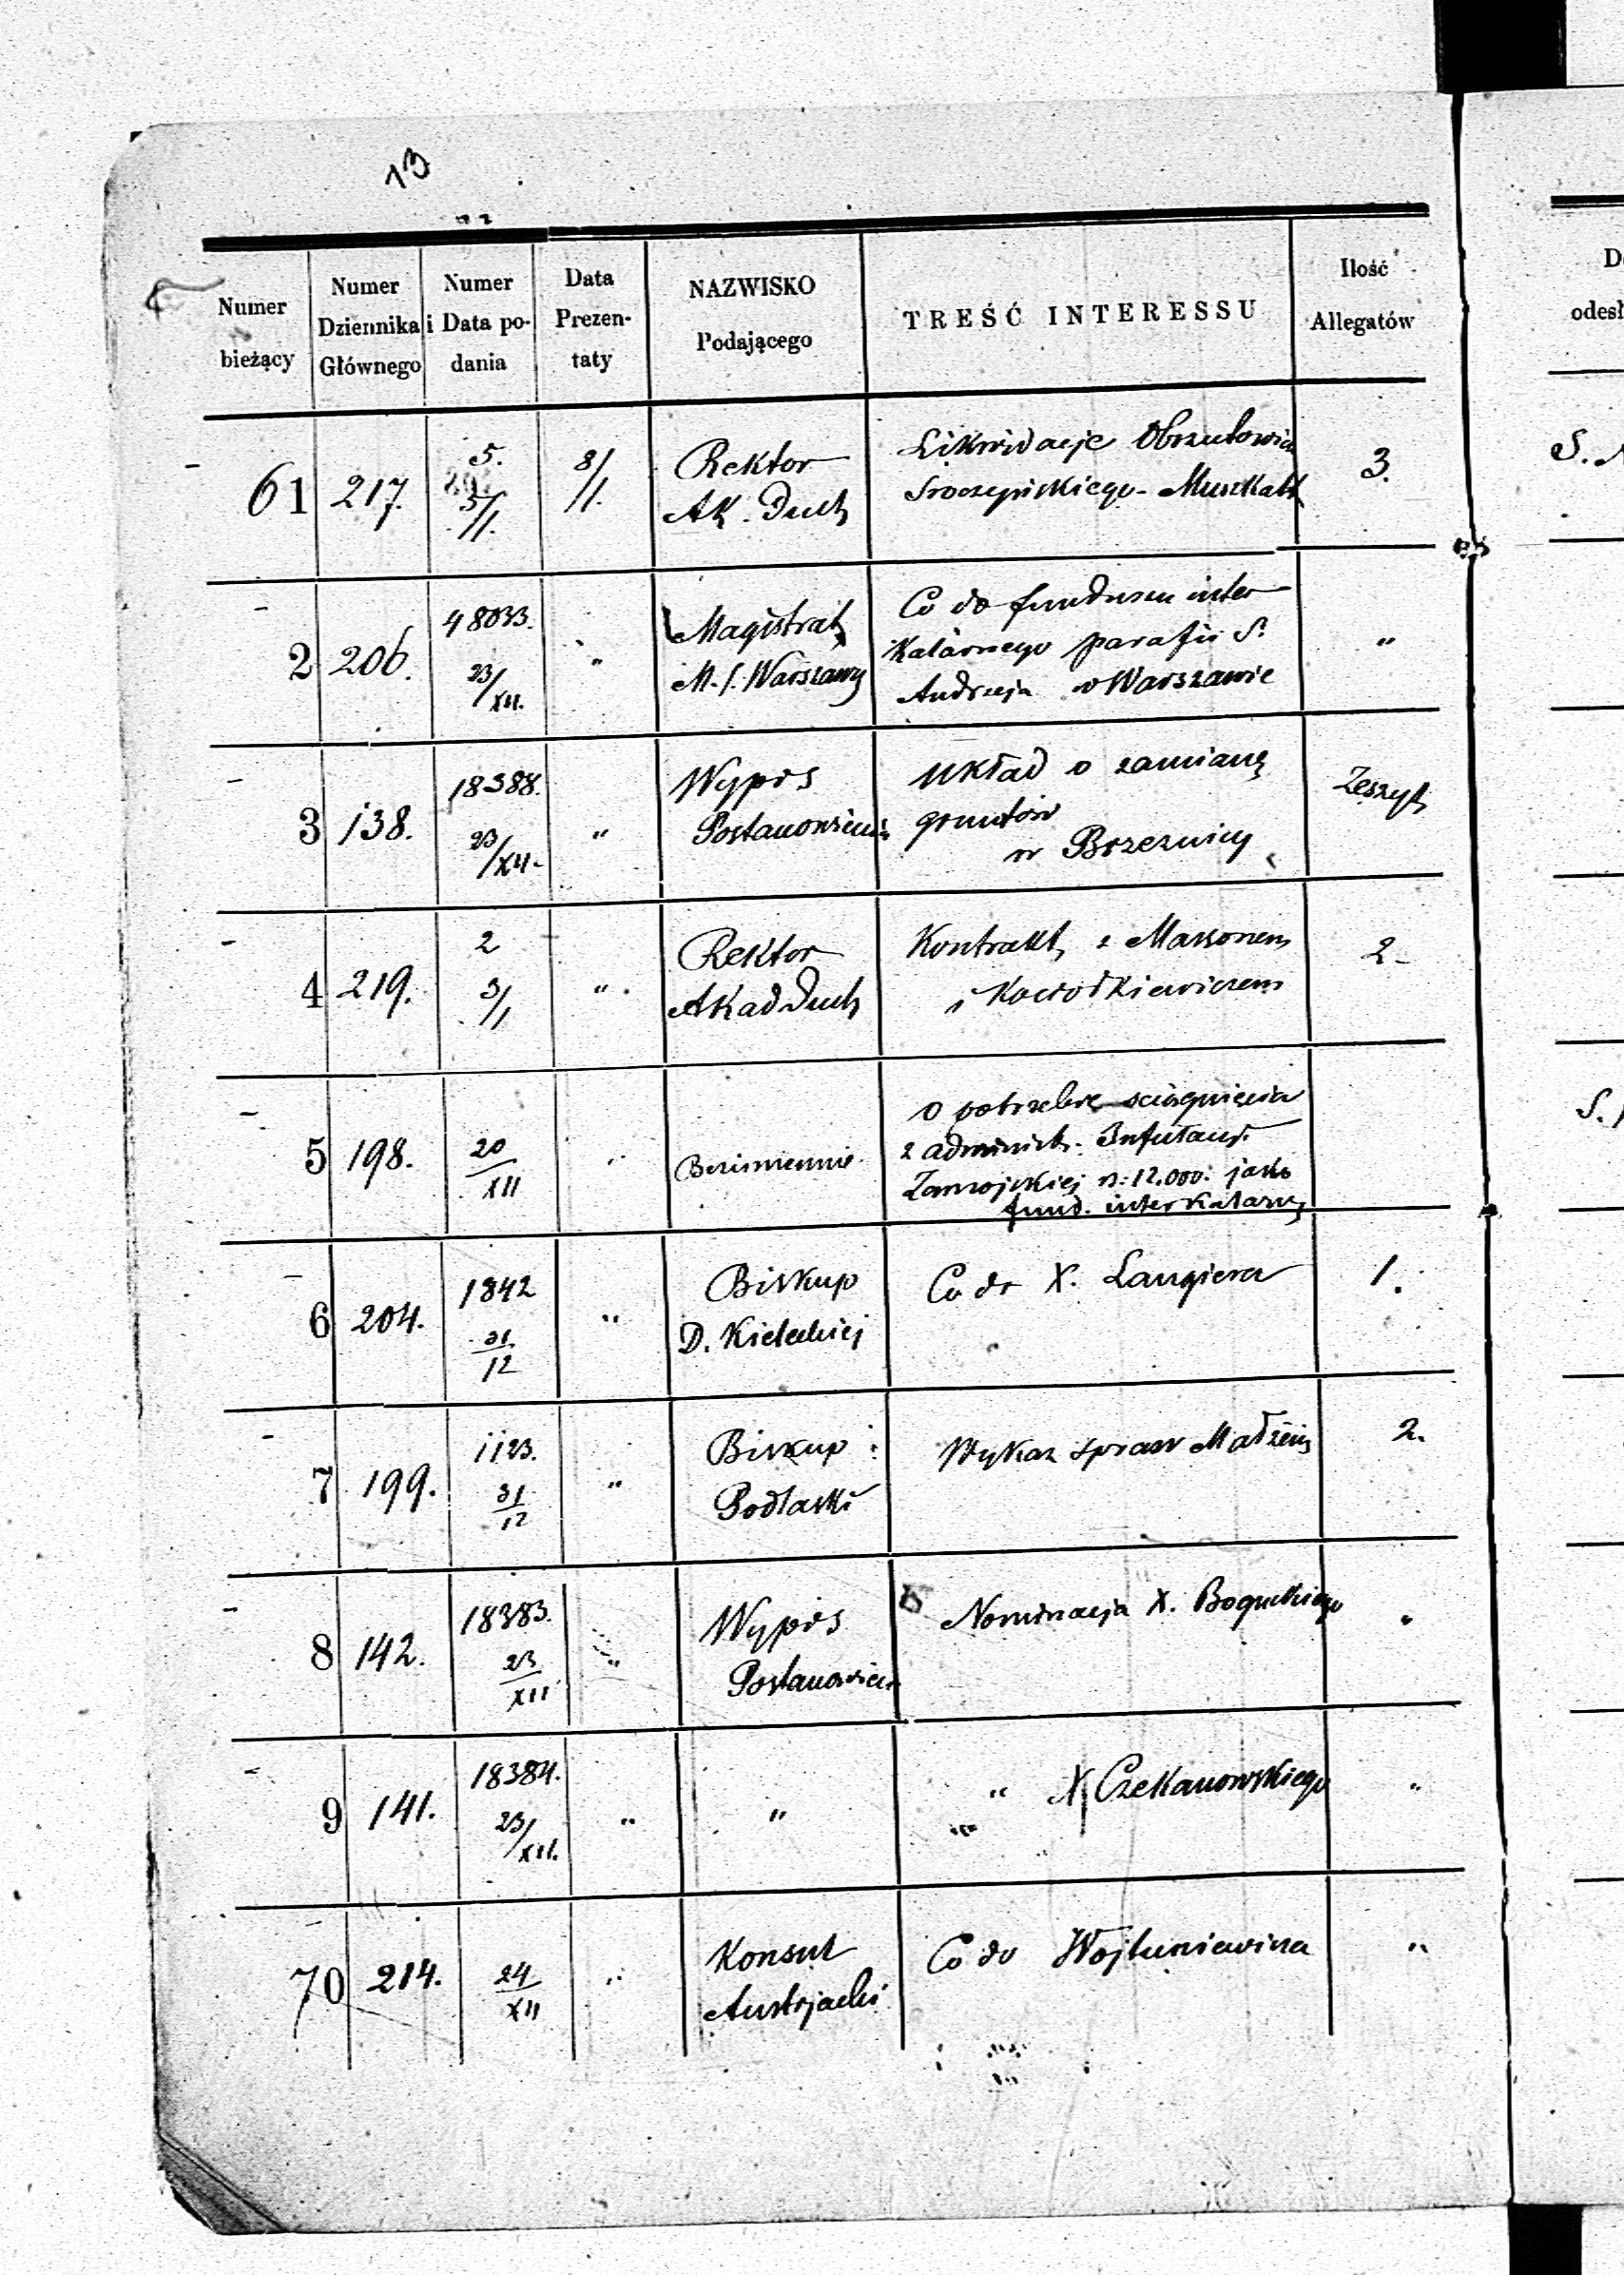 13
Numer bieżący
Numer Dziennika Głównego
Numer i Data podania
Data Prezentaty
NAZWISKO Podającego
TREŚĆ INTERESSU
Ilość Allegatów
61 217. 5. 5/I. 8/I. Rektor Likwidacje 3.
Ak. Duch
2 206. 48033. 23/XII. " Magistrat Co do funduszu inter
M. S. Warszawy kalarnego parafii S. "
Andrzeja w Warszawie
3 138. 18388. 23/XII. " Wypis układ o zamianę Zeszyt
Postanowienia gruntów
w Brzeznicy
4 219. 2 3/I " Rektor Kontrakt z Massonem 2
Akad Duch i
5 198. 20/XII " Bezimiennie O potrzebie sciągnięcia
z administr. Infułacy.
Zamojskiej rs: 12.000: jako
fund. interkalarny
6 204. 1842 31/12 " Biskup Co do X. Langiera 1.
D. Kieleckiej
7 199. 1123. 31/12 " Biskup Wykaz spraw Małżeń 2.
Podlaski
8 142. 18383. 23/XII " Wypis Nominacja X. Boguckiego "
Postanowien
9 141. 18384. 23/XII. " " " X Czekanowskiego "
70 214. 24/XII " Konsul Co do Wojtuniewicza "
Austrjacki
D
odesł
S.
S.